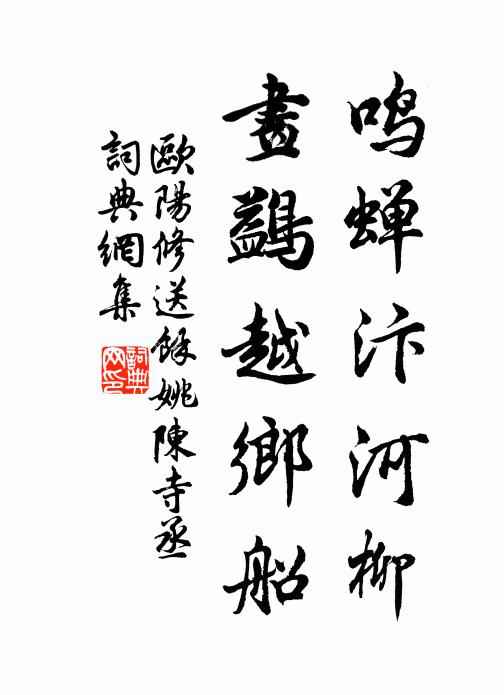 鸣蝉汴河柳
畫鷁越鄉船
歐陽修送餘姚陳寺丞
詞典網集
詞典网印